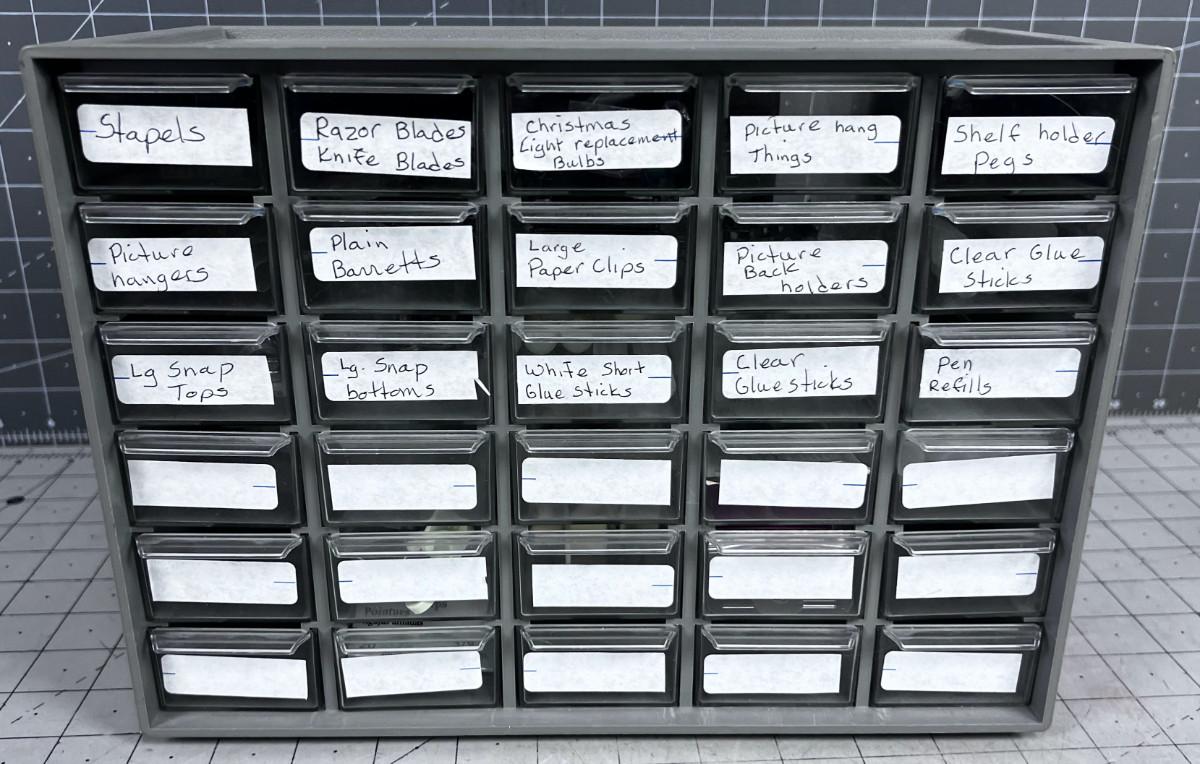 Stapels
Razor Blades
Knife Blades
Christmas
Light replacement
Bulbs
Picture hang
Things
Shelf holder
Pegs
Picture
hangers
Plain
Barretts
Large
Paper Clips
Picture
Back
holders
Clear Glue
Sticks
Lg Snap
Tops
Lg. Snap
bottoms
White Short
Glue sticks
Clear
Glue sticks
Pen
Refills